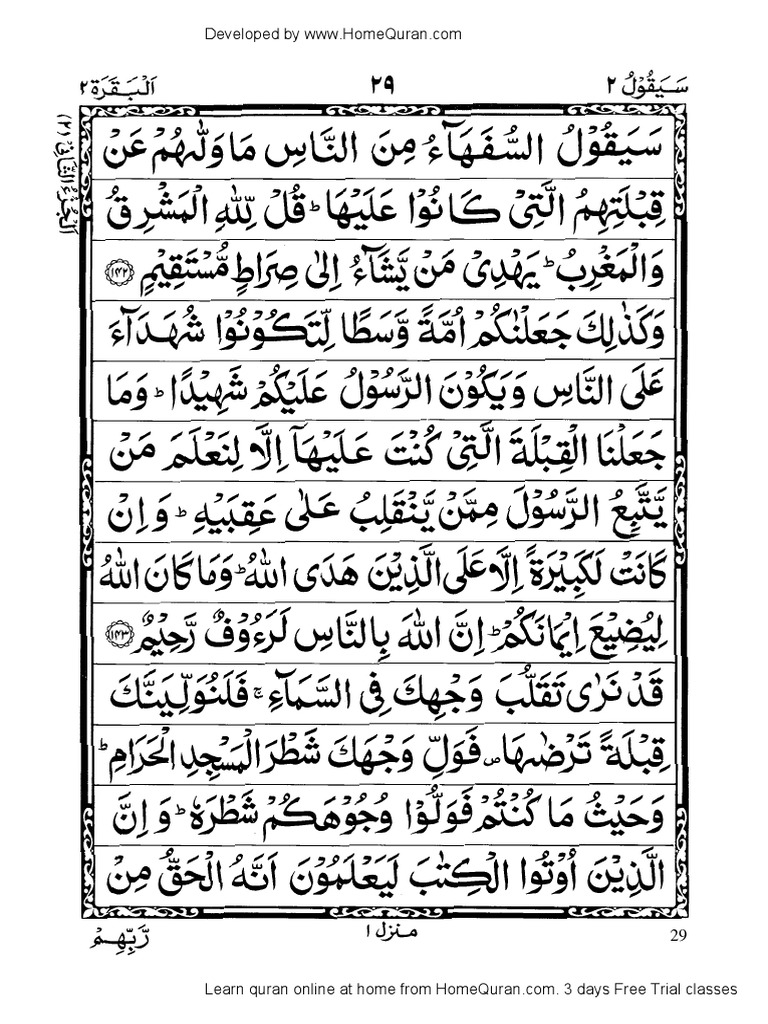 Developed by www.HomeQuran.com
سَيَقُوْلُ ٢ ٢٩ اَلْبَقَرَة ٢
اَلْجُزْءُ الثَّانِيْ (٢)
سَيَقُوْلُ السُّفَهَآءُ مِنَ النَّاسِ مَا وَلّٰىهُمْ عَنْ
قِبْلَتِهِمُ الَّتِيْ كَانُوْا عَلَيْهَا ؕ قُلْ لِّلّٰهِ الْمَشْرِقُ
وَالْمَغْرِبُ ؕ يَهْدِيْ مَنْ يَّشَآءُ اِلٰى صِرَاطٍ مُّسْتَقِيْمٍ ﴿١٤٢﴾
وَكَذٰلِكَ جَعَلْنٰكُمْ اُمَّةً وَّسَطًا لِّتَكُوْنُوْا شُهَدَآءَ
عَلَى النَّاسِ وَيَكُوْنَ الرَّسُوْلُ عَلَيْكُمْ شَهِيْدًا ؕ وَمَا
جَعَلْنَا الْقِبْلَةَ الَّتِيْ كُنْتَ عَلَيْهَآ اِلَّا لِنَعْلَمَ مَنْ
يَّتَّبِعُ الرَّسُوْلَ مِمَّنْ يَّنْقَلِبُ عَلٰى عَقِبَيْهِ ؕ وَ اِنْ
كَانَتْ لَكَبِيْرَةً اِلَّا عَلَى الَّذِيْنَ هَدَى اللّٰهُ ؕ وَمَا كَانَ اللّٰهُ
لِيُضِيْعَ اِيْمَانَكُمْ ؕ اِنَّ اللّٰهَ بِالنَّاسِ لَرَءُوْفٌ رَّحِيْمٌ ﴿١٤٣﴾
قَدْ نَرٰى تَقَلُّبَ وَجْهِكَ فِي السَّمَآءِ ۚ فَلَنُوَلِّيَنَّكَ
قِبْلَةً تَرْضٰىهَا ۪ فَوَلِّ وَجْهَكَ شَطْرَ الْمَسْجِدِ الْحَرَامِ ؕ
وَحَيْثُ مَا كُنْتُمْ فَوَلُّوْا وُجُوْهَكُمْ شَطْرَهٗ ؕ وَ اِنَّ
الَّذِيْنَ اُوْتُوا الْكِتٰبَ لَيَعْلَمُوْنَ اَنَّهُ الْحَقُّ مِنْ
29 منزل ١ رَّبِّهِمْ
Learn quran online at home from HomeQuran.com. 3 days Free Trial classes